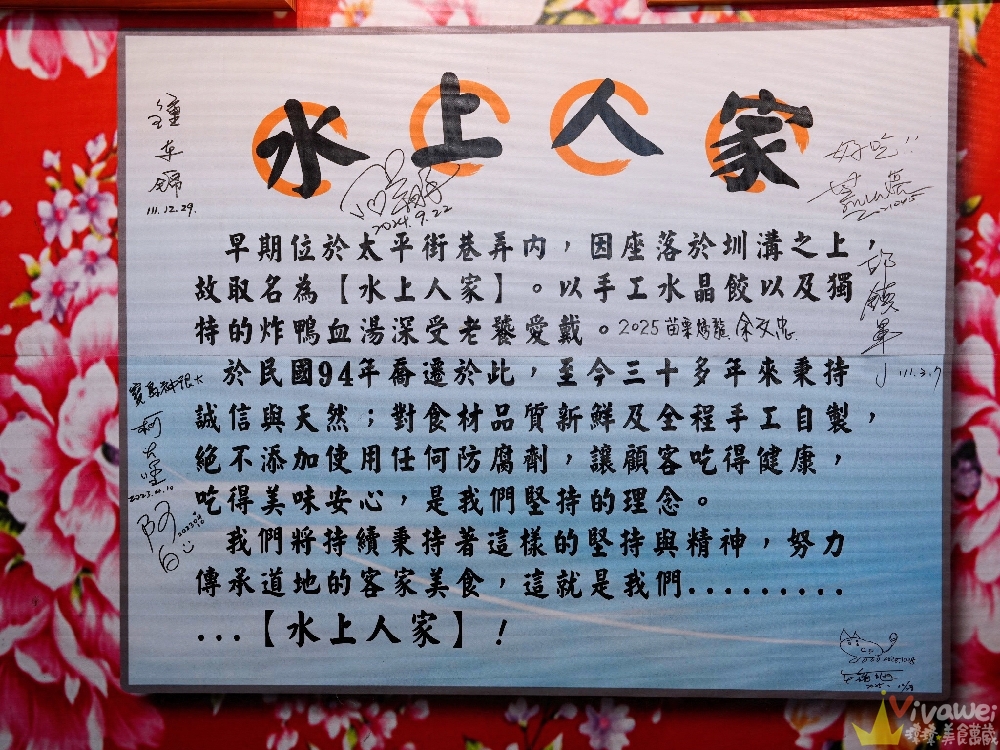 水上人家
鍾東錦
111.12.29.
2024.9.22
好吃!!
早期位於太平街巷弄內，因座落於圳溝之上，
故取名為【水上人家】。以手工水晶餃以及獨
特的炸鴨血湯深受老饕愛戴。2025苗栗
於民國94年喬遷於此，至今三十多年來秉持
誠信與天然；對食材品質新鮮及全程手工自製，
絕不添加使用任何防腐劑，讓顧客吃得健康，
吃得美味安心，是我們堅持的理念。
我們將持續秉持著這樣的堅持與精神，努力
傳承道地的客家美食，這就是我們.........
...【水上人家】！
111.3.7
2023.10.10
Vivawei
美食萬歲